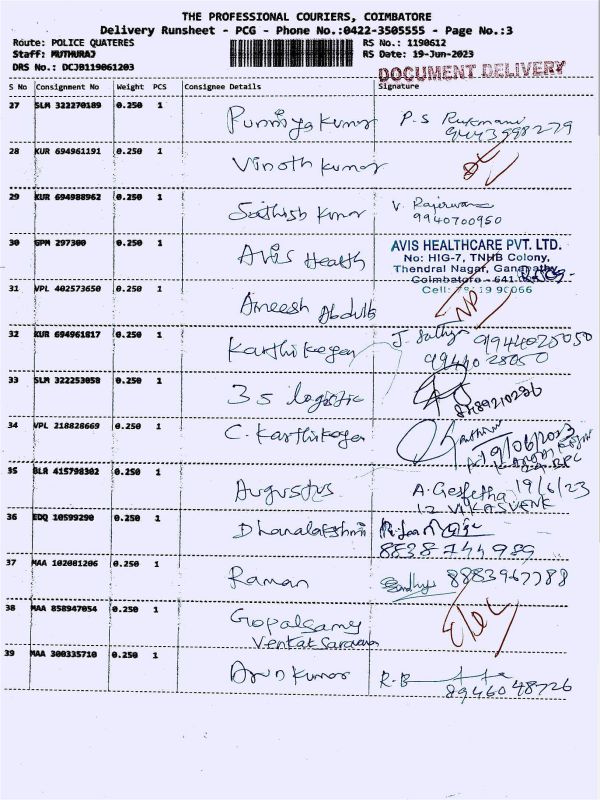 THE PROFESSIONAL COURIERS, COIMBATORE
Delivery Runsheet - PCG - Phone No.:0422-3505555 - Page No.:3
Route: POLICE QUATERES
RS No.: 1190612
Staff: MUTHURAJ
RS Date: 19-Jun-2023
DRS No.: DCJB119061203
DOCUMENT DELIVERY
S No Consignment No Weight PCS Consignee Details Signature
27 SLM 322270189 0.250 1
Punniyakumar P.S Rukmani
9443998279
28 KUR 694961191 0.250 1
Vinoth kumar
29 KUR 694988962 0.250 1
Sathish kumar V. Rajeswari
9940700950
30 GPM 297300 0.250 1
Avis Health
AVIS HEALTHCARE PVT. LTD.
No: HIG-7, TNHB Colony,
Thendral Nagar, Ganapathy
Coimbatore - 641
31 VPL 402573650 0.250 1
Ameesh Abdulla
NP
32 KUR 694961817 0.250 1
Karthikeyan J. Sathya 9944028050
9944028050
33 SLM 322253058 0.250 1
3s logistic
8489210286
34 VPL 218828669 0.250 1
C. Karthikeyan
19/06/2023
35 BLR 415798302 0.250 1
Augustus A. 19/6/23
12 VIKASVENE
36 EDQ 10599290 0.250 1
Dhanalakshmi
8838744989
37 MAA 102081206 0.250 1
Raman Sandhya 8883967788
38 MAA 858947054 0.250 1
Gopalsamy
Venkat Saravana
39 MAA 300335710 0.250 1
Arun kumar R.B
8946048726